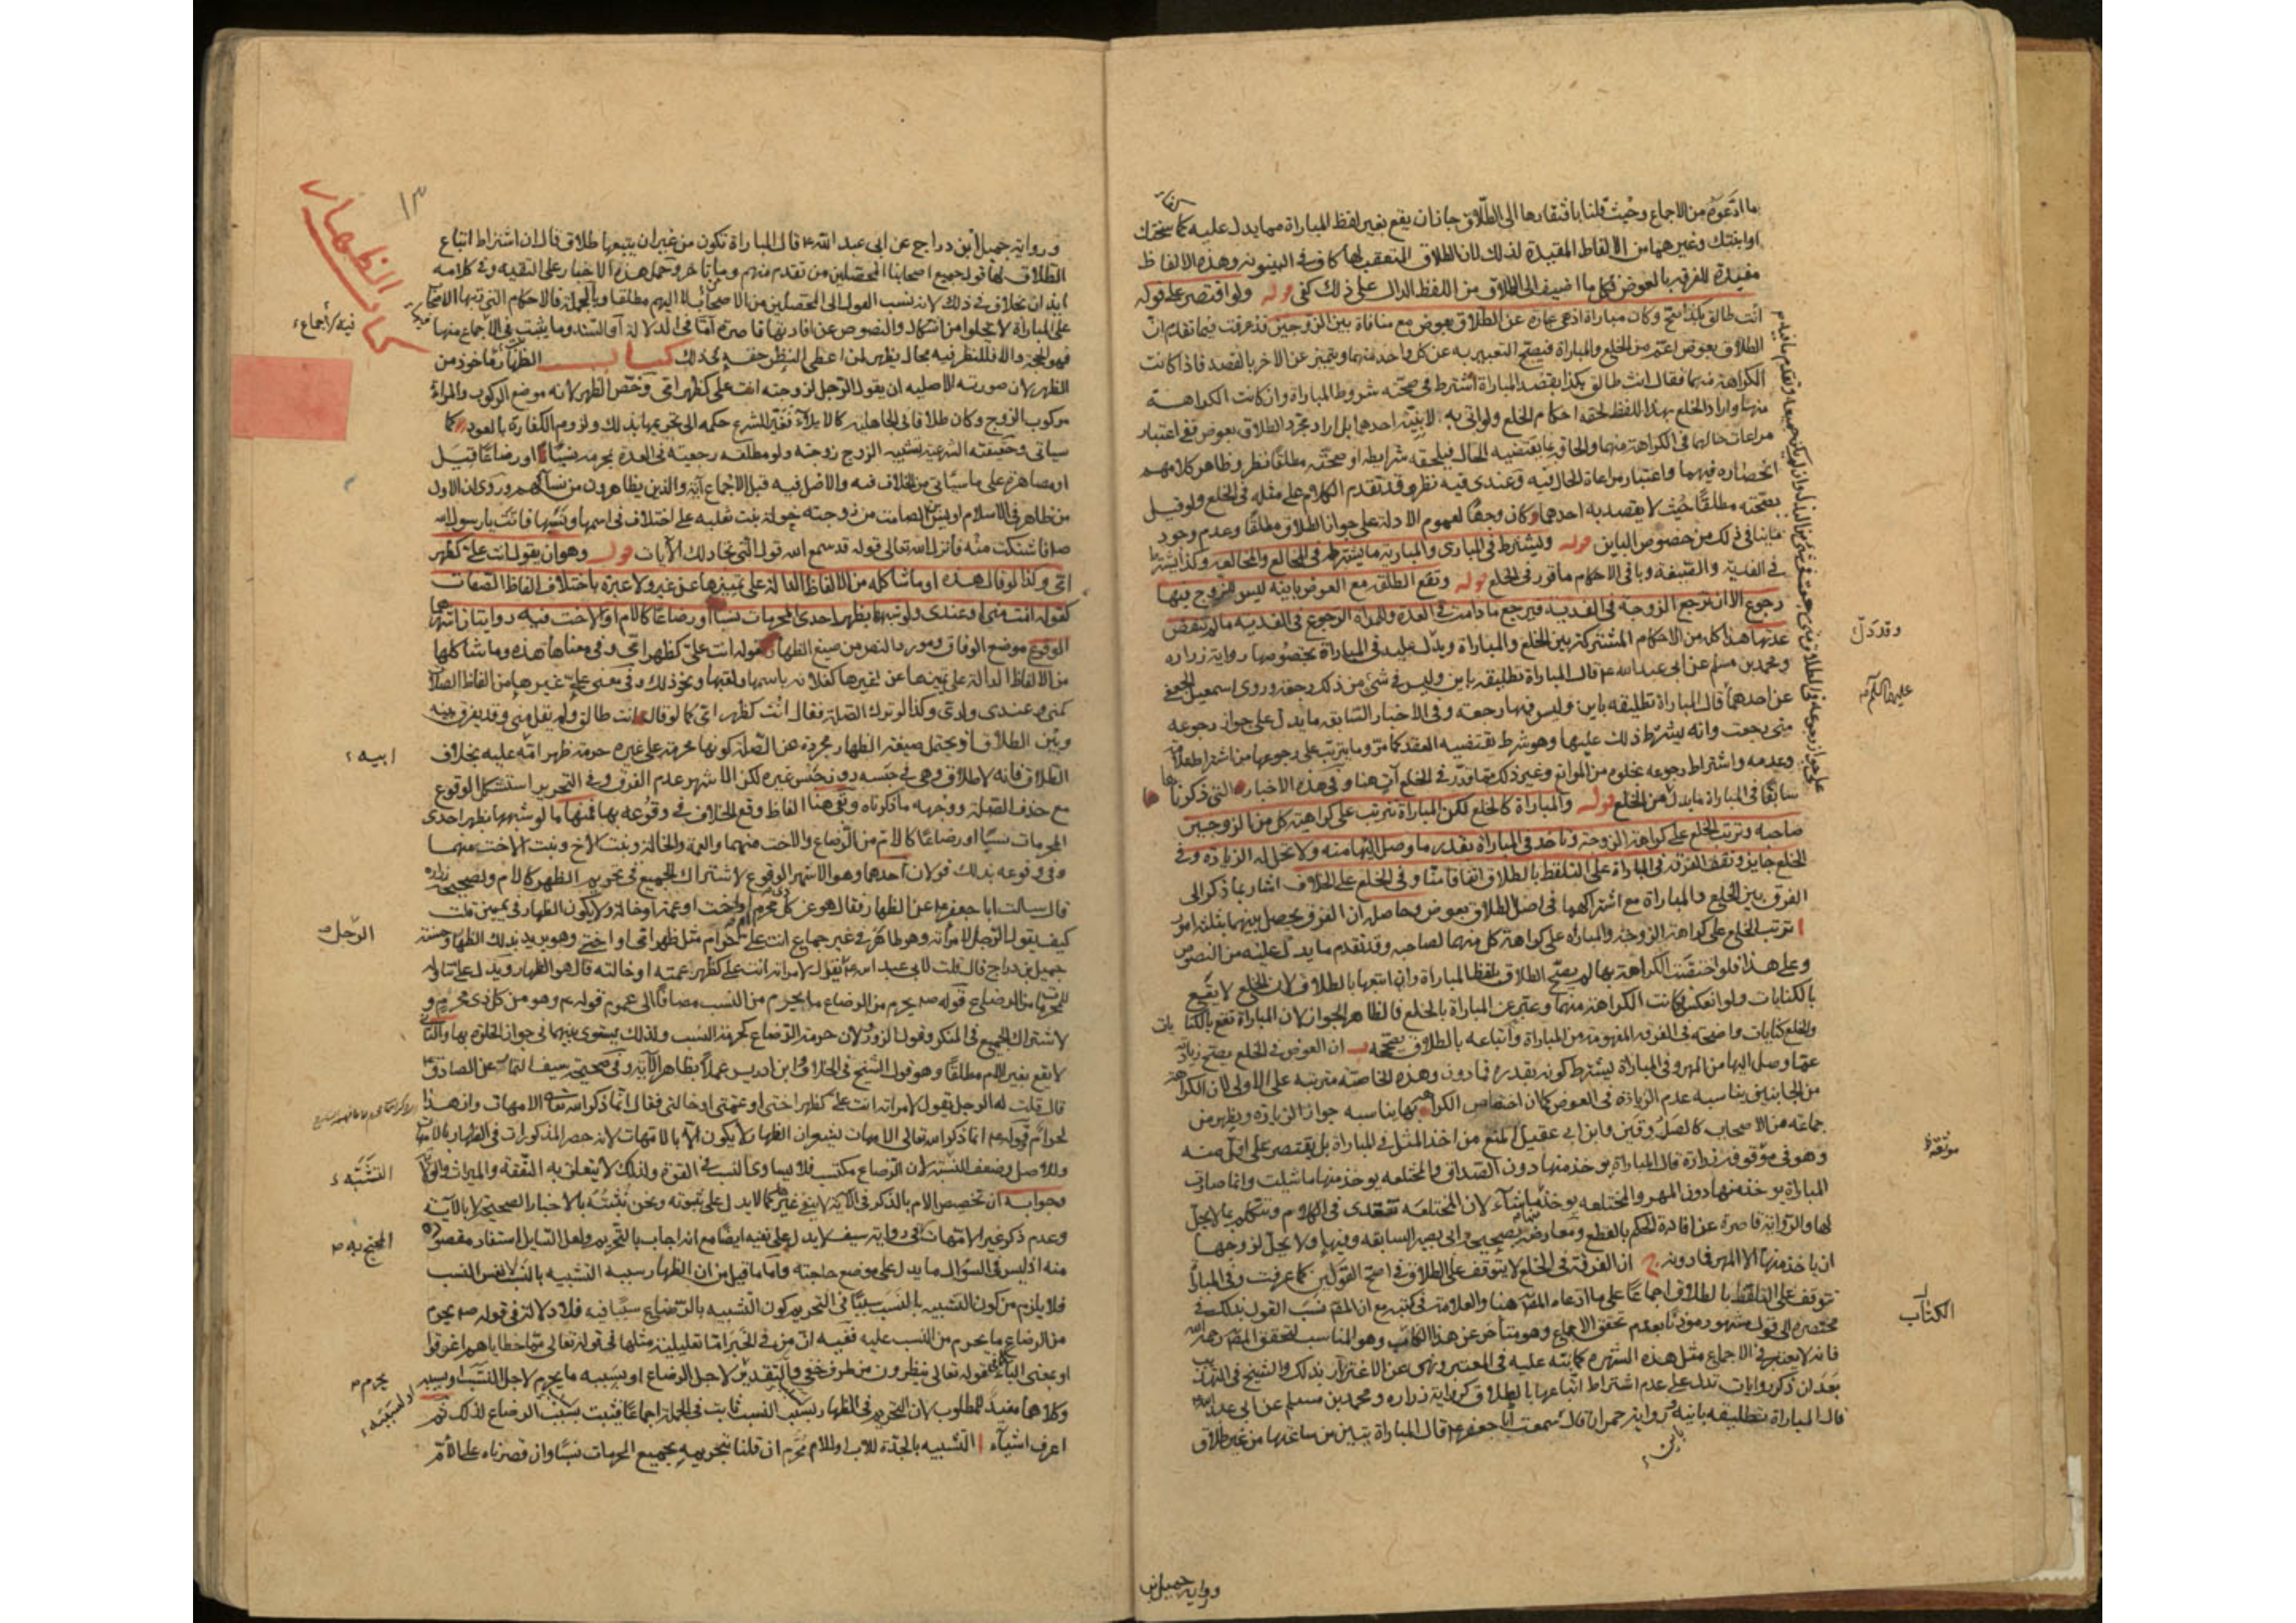 ما ادعوه من الاجماع وحيث قلنا بافتقارها الى الطلاق جاز ان يقع بغير لفظ المباراة مما يدل عليه كما سختك
او ابنتك وغيرهما من الالفاظ المقيدة لذلك لان الطلاق المتعقب لها كاف في البينونة وهذه الالفاظ
مفيدة للفرقة بالعوض فكل ما اضيف الى الطلاق من اللفظ الدال على ذلك كفى قوله ولو اقتصر على قوله
انت طالق بكذا صح وكان مباراة اذ هي عبارة عن الطلاق بعوض مع منافاة بين الزوجين قد عرفت فيما تقدم ان
الطلاق بعوض اعم من الخلع والمباراة فيصح التعبير به عن كل واحد منهما ويتميز عن الاخر بالقصد فاذا كانت
الكراهة منهما فقال انت طالق بكذا بقصد المباراة اشترط في صحته شروط المباراة وان كانت الكراهة
منها واراد الخلع بهذا اللفظ لحقه احكام الخلع ولو اتى به لا بنية احدهما بل اراد مجرد الطلاق بعوض ففي اعتبار
مراعات حالهما في الكراهة منهما والحاقه بما يقتضيه الحال فيلحقه شرايطه او صحته مطلقا نظر وظاهر كلامهم
انحصاره فيهما واعتبار مراعاة الحال فيه وعندي فيه نظر وقد تقدم الكلام على مثله في الخلع ولو قيل
بصحته مطلقا حيث لا يقصد به احدهما كان وجها لعموم الادلة على جواز الطلاق مطلقا وعدم وجود
ما ينافي ذلك من خصوص الباين قوله ويشترط في المبارى والمبارية ما يشترط في المخالع والمخالعة وكذا يشترط
في الفدية والصيغة وباقي الاحكام ما قرر في الخلع قوله وتقع الطلقة مع العوض باينة ليس للزوج فيها
رجوع الا ان ترجع الزوجة في الفدية فيرجع ما دامت في العدة وللمراة الرجوع في الفدية ما لم تنقض
عدتها هذا كله من الاحكام المشتركة بين الخلع والمباراة ويدل عليه في المباراة بخصوصها رواية زرارة
ومحمد بن مسلم عن ابي عبد الله ع قال المباراة تطليقة باين وليس في شئ من ذلك رجعة وروى اسمعيل الجعفي
عن احدهما قال المباراة تطليقة باين وليس فيها رجعة وفي الاخبار السابقة ما يدل على جواز رجوعه
متى رجعت وانه يشترط ذلك عليها وهو شرط يقتضيه العقد كما مر وما يترتب على رجوعها من اشتراط علمه
وعدمه واشتراط رجوعه بخلوه من الموانع وغير ذلك مما قرر في الخلع آت هنا وفي هذه الاخبار التي ذكرناها
سابقا في المباراة ما يدل من الخلع قوله والمباراة كالخلع لكن المباراة تترتب على كراهية كل من الزوجين
صاحبه وترتب الخلع على كراهة الزوجة وياخذ في المباراة بقدر ما وصل اليها منه ولا تحل له الزيادة وفي
الخلع جايز وتقف الفرقة في المباراة على التلفظ بالطلاق اتفاقا منا وفي الخلع على الخلاف اشار بما ذكر الى
الفرق بين الخلع والمباراة مع اشتراكهما في اصل الطلاق بعوض وحاصله ان الفرق يحصل بينهما بثلثة امور
ا ترتب الخلع على كراهة الزوجة والمباراة على كراهة كل منهما لصاحبه وقد تقدم ما يدل عليه من النصوص
وعلى هذا فلو اختصت الكراهة بها لم يصح الطلاق بلفظ المباراة وان اتبعها بالطلاق لان الخلع لا يقع
بالكنايات ولو انعكس فكانت الكراهة منهما وعبر عن المباراة بالخلع فالظاهر الجواز لان المباراة تقع بالكنايات
والخلع كنايات واضحة في الفرقة المفهومة من المباراة واتباعه بالطلاق يصححه ب ان العوض في الخلع يصح زيادته
عما وصل اليها من المهر وفي المباراة يشترط كونه بقدره فما دون وهذه الخاصة مترتبة على الاولى لان الكراهة
من الجانبين يناسبه عدم الزيادة في العوض كما ان اختصاص الكراهة بها يناسبه جواز الزيادة ويظهر من
جماعة من الاصحاب كالصدوقين وابن ابي عقيل المنع من اخذ المثل في المباراة بل يقتصر على اقل منه
وهو في موقوفة زرارة قال المباراة يوخذ منها دون الصداق والمختلعة يوخذ منها ما شئت وانما صارت
المباراة يوخذ منها دون المهر والمختلعة يوخذ ما شاء لان المختلعة تعتدى في الكلام وتتكلم بما لا يحل
لها والرواية قاصرة عن افادة الحكم بالقطع ومعارضة بصحيحة ابي بصير السابقة وفيها ولا يحل لزوجها
ان ياخذ منها الا المهر فما دونه ج ان الفرقة في الخلع لا يتوقف على الطلاق في اصح القولين كما عرفت وفي المباراة
تتوقف على التلفظ بالطلاق اجماعا على ما ادعاه المص هنا والعلامة في كتبه مع ان المص نسب القول بذلك في
مختصره الى قول مشهور موذنا بعدم تحقق الاجماع وهو متاخر عن هذا الكتاب وهو المناسب لتحقق المص رحمه الله
فانه لا يعتبر في الاجماع مثل هذه الشهرة كما نبه عليه في المعتبر ونهى عن الاغترار بذلك والشيخ في التهذيب
بعد ان ذكر روايات تدل على عدم اشتراط اتباعها بالطلاق كرواية زرارة ومحمد بن مسلم عن ابي عبد الله
قال المباراة تطليقة باينة ورواية حمران قال سمعت ابا جعفر ع قال المباراة تبين من ساعتها من غير طلاق
وقد دل
عليهما السلام
موثقة
الكتاب
باين
ورواية جميل بن
كتاب الظهار
١٣
ورواية جميل بن دراج عن ابي عبد الله ع قال المباراة تكون من غير ان يتبعها طلاق قال ان اشتراط اتباع
الطلاق لها قول جميع اصحابنا المحصلين من تقدم منهم ومن تاخر وحمل هذه الاخبار على التقية وفي كلامه
ايذان بخلاف في ذلك لانه نسب القول الى المحصلين من الاصحاب لا اليهم مطلقا وبالجملة فالاحكام التي رتبها الاصحاب
على المباراة لا يخلو من اشكال والنصوص عن افادتها قاصرة اما في الدلالة او السند وما يثبت فيه الاجماع منها
فهو الحجة والا فللنظر فيه مجال يظهر لمن اعطى النظر حقه في ذلك كتاب الظهار ماخوذ من
الظهر لان صورته الاصلية ان يقول الرجل لزوجته انت علي كظهر امي وخص الظهر لانه موضع الركوب والمراة
مركوب الزوج وكان طلاقا في الجاهلية كالايلاء فغير الشرع حكمه الى تحريمها بذلك ولزوم الكفارة بالعود كما
سياتي وحقيقته الشرعية تشبيه الزوج زوجته ولو مطلقة رجعية في العدة بمحرمة نسبا او رضاعا قيل
او مصاهرة على ما سياتي من الخلاف فيه والاصل فيه قبل الاجماع آية والذين يظاهرون من نسائهم وروي ان الاول
من ظاهر في الاسلام اويس بن الصامت من زوجته خولة بنت ثعلبة على اختلاف في اسمها ونسبها فاتت رسول الله
ص فاشتكت منه فانزل الله تعالى قوله قد سمع الله قول التي تجادلك الآيات قوله وهو ان يقول انت علي كظهر
امي وكذا لو قال هذه او ما شاكله من الالفاظ الدالة على تميزها عن غير ولا عبرة باختلاف الفاظ الصفات
كقوله انت مني او عندي ولو شبهها بظهر احدى المحرمات نسبا او رضاعا كالام او الاخت فيه روايتان اشهرهما
الوقوع موضع الوفاق ومورد النص من صيغ الظهار قوله انت علي كظهر امي وفي معناها هذه وما شاكلها
من الالفاظ الدالة على تميزها عن غيرها كفلانة باسمها ولقبها ونحو ذلك وفي معنى علي غيرها من الفاظ الصلات
كمني وعندي ولدي وكذا لو ترك الصلة فقال انت كظهر امي كما لو قال انت طالق ولم يقل مني وقد يفرق بينه
وبين الطلاق او يحتمل صيغة الظهار مجردة عن الصلة كونها محرمة على غيره حرمة ظهر امه عليه بخلاف
الطلاق فانه لا طلاق وهي في حبسه دون حبس غيره لكن الاشهر عدم الفرق وفي التحرير استشكل الوقوع
مع حذف الصلة ووجهه ما ذكرناه وبقي هنا الفاظ وقع الخلاف في وقوعه بها فمنها ما لو شبهها بظهر احدى
المحرمات نسبا او رضاعا كالام من الرضاع والاخت منهما والعمة والخالة وبنت الاخ وبنت الاخت منهما
وفي وقوعه بذلك قولان احدهما وهو الاشهر الوقوع لاشتراك الجميع في تحريم الظهر كالام ولصحيحة زرارة
قال سالت ابا جعفر ع عن الظهار فقال هو عن كل ذي محرم ام او اخت او عمة او خالة ولا يكون الظهار في يمين قلت
كيف يقول الرجل لامراته وهو طاهر في غير جماع انت علي حرام مثل ظهر امي او اختي وهو يريد بذلك الظهار وحسنة
جميل بن دراج قال قلت لابي عبد الله ع يقول لامراته انت علي كظهر عمته او خالته قال هو الظهار ويدل على تناوله
للمحرمات من الرضاع قوله ص يحرم من الرضاع ما يحرم من النسب مضافا الى عموم قوله ع وهو من كل ذي محرم و
لاشتراك الجميع في المنكر وقول الزور ولان حرمة الرضاع كحرمة النسب ولذلك يستوى بينهما في جواز الخلوة بها والثاني
لا يقع بغير الام مطلقا وهو قول الشيخ في الخلاف وابن ادريس عملا بظاهر الآية وفي صحيحة سيف التمار عن الصادق ع
قال قلت له الرجل يقول لامراته انت علي كظهر اختي او عمتي او خالتي فقال انما ذكر الله تعالى الامهات وان هذا
لحرام فقوله ع انما ذكر الله تعالى الامهات يشعر ان الظهار لا يكون الا بالامهات لانه حصر المذكورات في الظهار بالامهات
وللاصل وضعف التشبه لان الرضاع مكتسب فلا يساوي النسب في القوة ولذلك لا يتعلق به النفقة والميراث والولاية
وجوابه ان تخصيص الام بالذكر في الآية لا ينفي غيرها كما لا يدل على ثبوته ونحن نثبته بالاخبار الصحيحة لا بالآية
وعدم ذكر غير الامهات في رواية سيف لا يدل على نفيه ايضا مع انه اجاب بالتحريم ولعل السايل استفاد مقصوده
منه اذ ليس في السؤال ما يدل على موضع حاجته واما ما قيل من ان الظهار سببه التشبيه بالنسب لا نفس النسب
فلا يلزم من كون التشبيه بالنسب سببا في التحريم كون التشبيه بالرضاع سببا فيه فلا دلالة في قوله ص يحرم
من الرضاع ما يحرم من النسب عليه ففيه ان من في الخبر اما تعليلية مثلها في قوله تعالى مما خطاياهم اغرقوا
او بمعنى الباء كقوله تعالى ينظرون من طرف خفي والتقدير لاجل الرضاع او بسببه ما يحرم لاجل النسب او بسببه
وكلاهما مفيد للمطلوب لان التحريم في الظهار بسبب النسب ثابت في الجملة اجماعا فيثبت بسبب الرضاع لذلك ثم
اعرف اشياء ا التشبيه بالجدة للاب او للام محرم ان قلنا بتحريمه بجميع المحرمات نسبا وان قصرناه على الام
فيه الاجماع
ابيه
الرجل
التشبه
المحتج به
يحرم
او بسببه